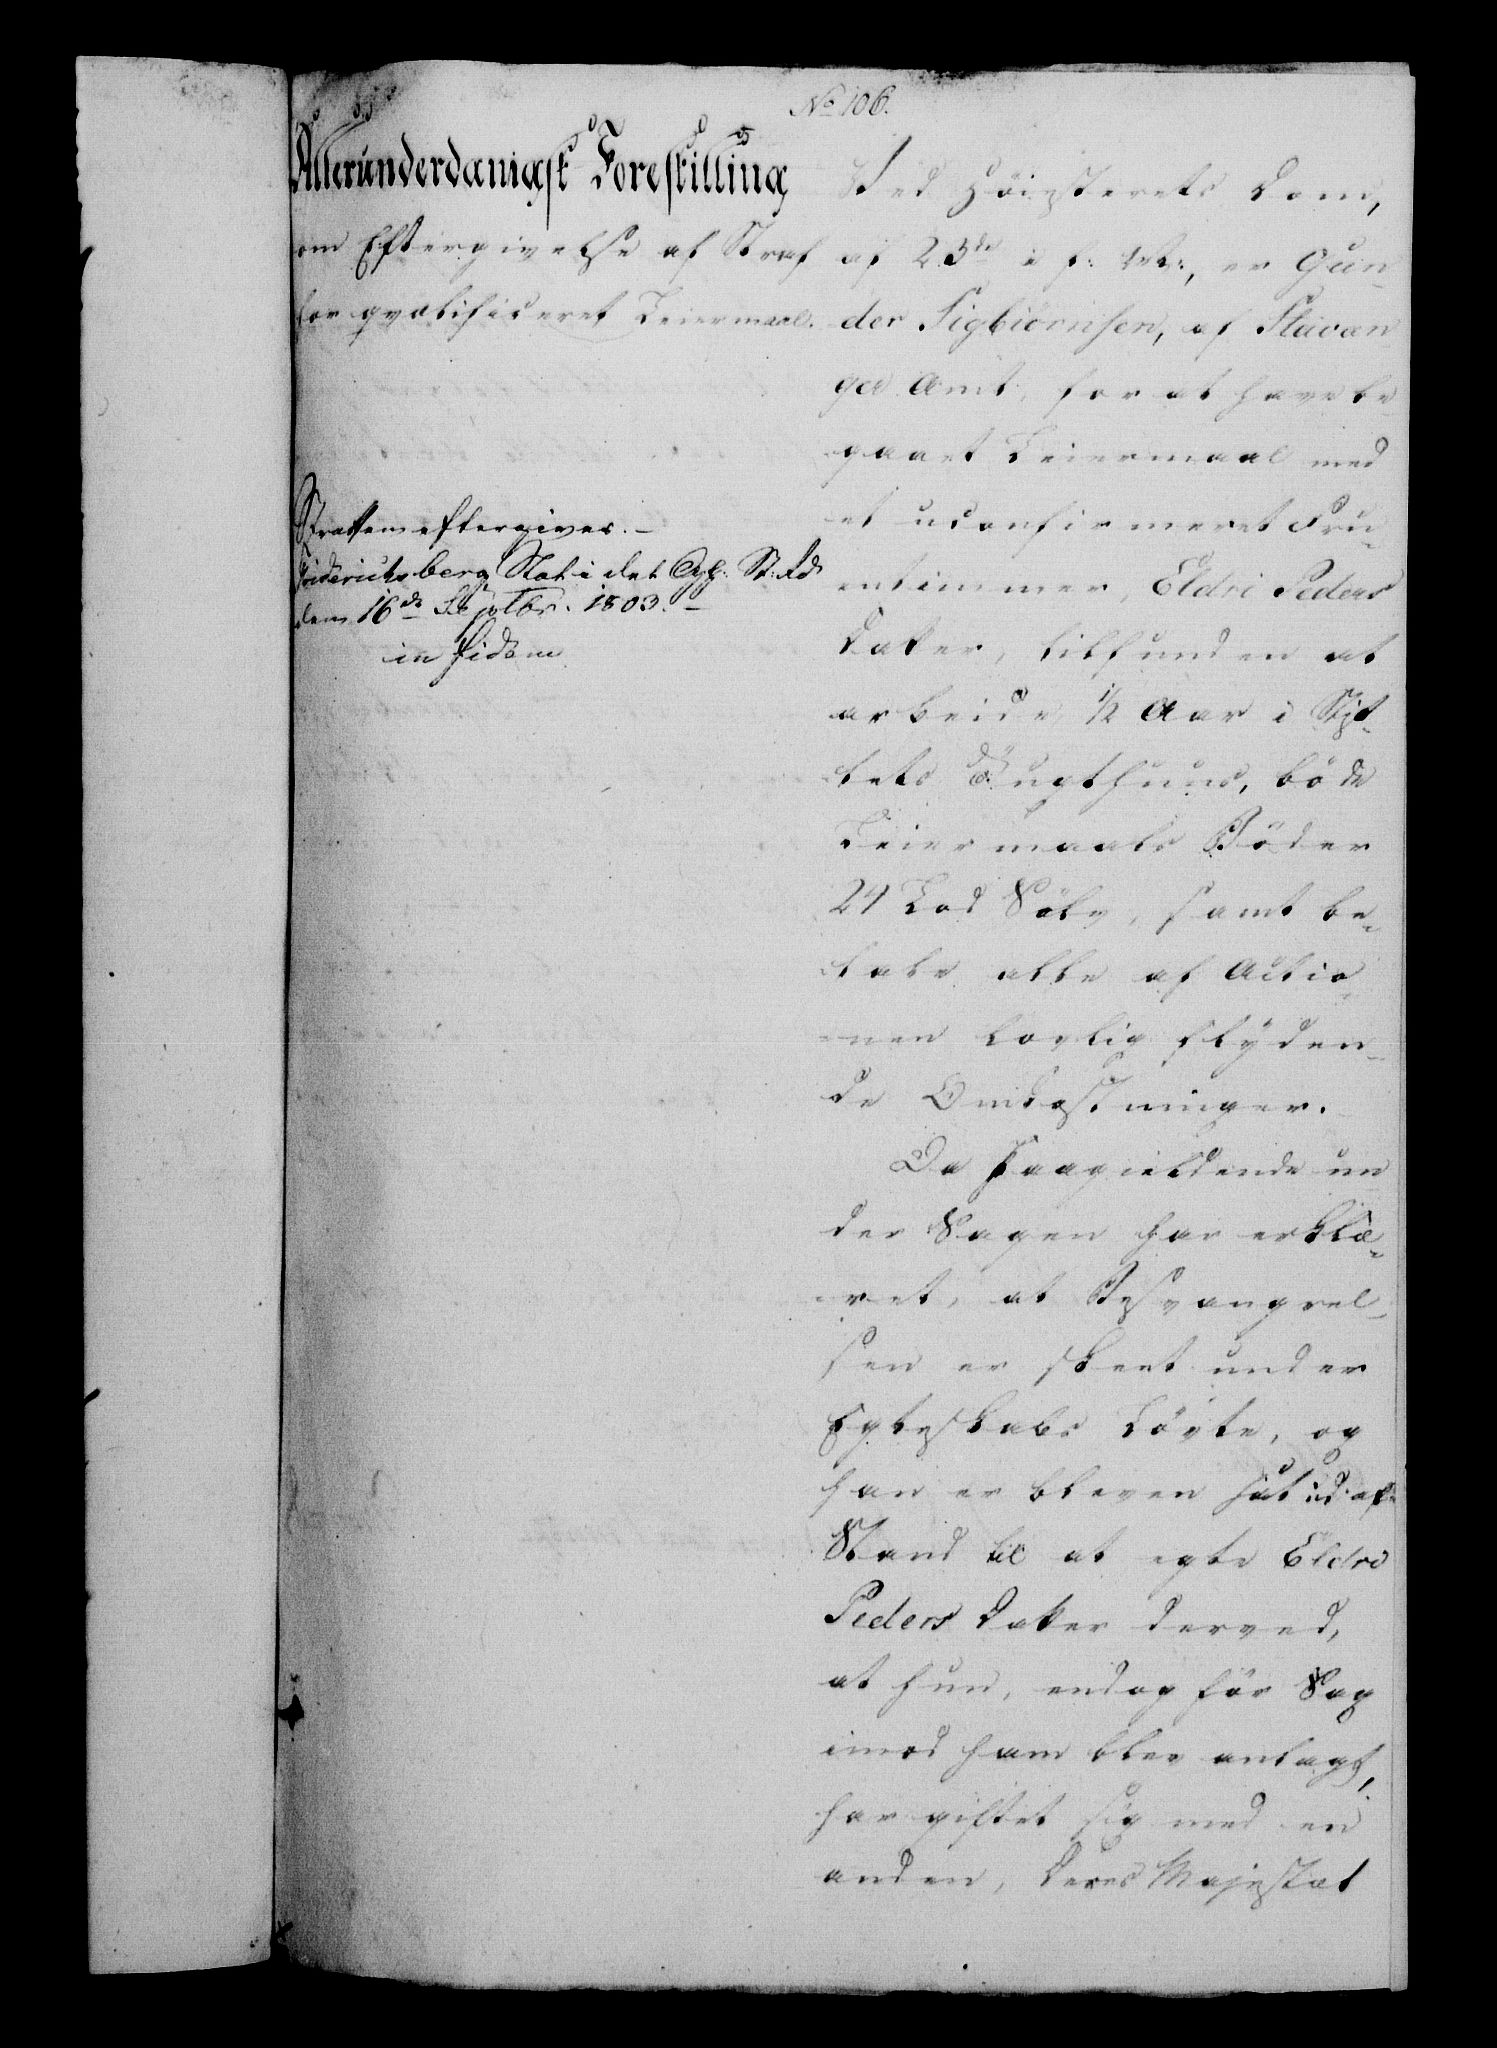 No 106.
Allerunderdanigst Forestilling
om Eftergivelse af Straf
for qvalificeret Leiermaal.
Straffen eftergives. –
Friderichsberg Slot i det Geh: St: Rd
dem 16de Septbr. 1803. –
in fidem
Ved Höiesterets Dom,
af 23de i f: M:, er Gun-
der Sigbiörnsen, af Stavan
ger Amt, for at have be
gaaet Leiermaal med
et uconfirmeret Fru-
entimmer, Eldri Peders
Datter, tilfunden at
arbeide ½ Aar i Stif-
tets Tugthuus, böde
Leiermaals Böder
24 Lod Sölv, samt be-
tale alle af Actio-
nen lovlig flyden-
de Omkostninger.
Da Paagieldende un
der Sagen har erklæ-
ret, at Besvangrel-
sen er skeet under
Egteskabs Lövte, og
han er bleven sat ud af
Stand til at egte Eldri
Peders Datter derved,
at hun, endog för Sag
imod ham blev anlagt,
har giftet sig med en
anden, Deres Majestæt